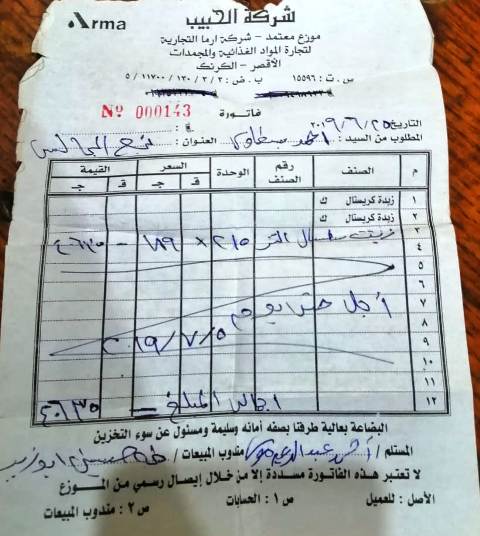 Arma
شركة الحبيب
موزع معتمد - شركة ارما التجارية
لتجارة المواد الغذائية والمجمدات
الأقصر - الكرنك
س . ت : ١٥٥٩٦ ب . ض : ٥ / ١١٧٠٠ / ١٣٠ / ٢ / ٢
فاتورة
Nº 000143
التاريخ ٢٠١٩/٦/٢٥
المطلوب من السيد : احمد العنوان : نجع
م الصنف رقم الصنف الوحدة السعر القيمة
ق جـ ق جـ
١ زبدة كريستال ك
٢ زبدة كريستال ك
٣ زيت ٢١٥ × ١٨٩ - ٤٠٦٣٥
٤
٥
٦
٧ أجل حتى يوم
٨
٩ ٢٠١٩/٧/٥
١٠
١١
١٢ اجمالى المبلغ ٤٠٦٣٥
البضاعة بعالية طرفنا بصفه أمانه وسليمة ومسئول عن سوء التخزين
المستلم / مندوب المبيعات / حسين ابوزيد
لا تعتبر هذه الفاتورة مسددة إلا من خلال إيصال رسمي من الموزع
الأصل : للعميل ص ١ : الحسابات ص ٢ : مندوب المبيعات